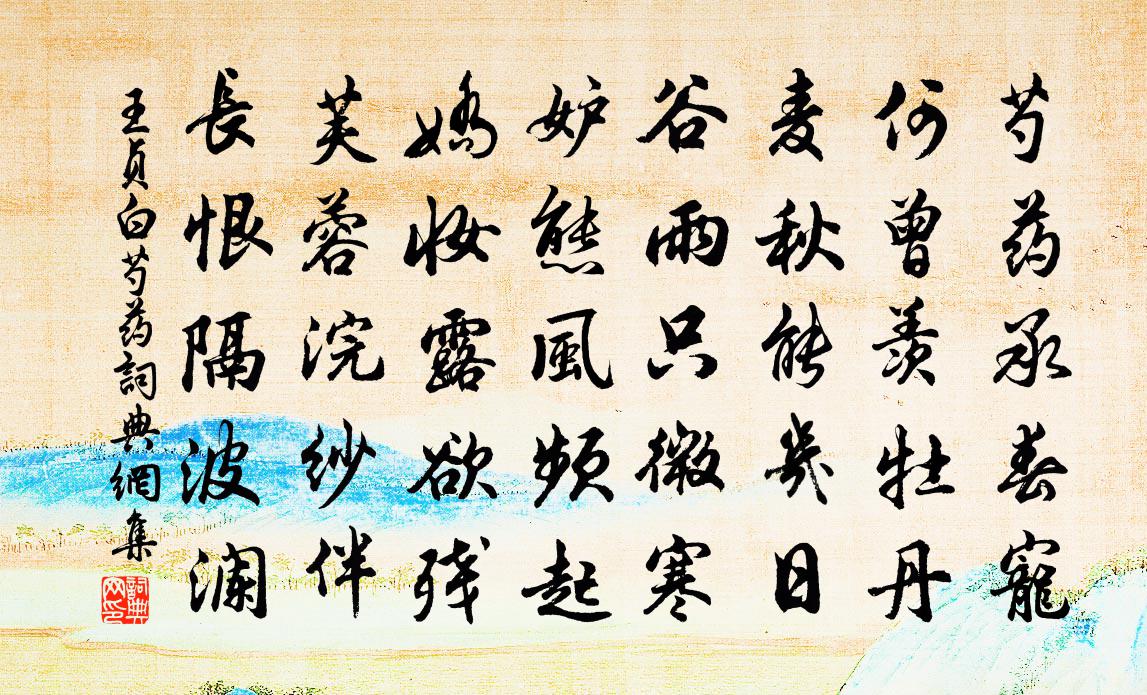 芍药承春寵
何曾羨牡丹
麦秋能幾日
谷雨只微寒
妒態風頻起
嬌妝露欲残
芙蓉浣紗伴
長恨隔波瀾
王貞白芍药詞典網集
詞典網印